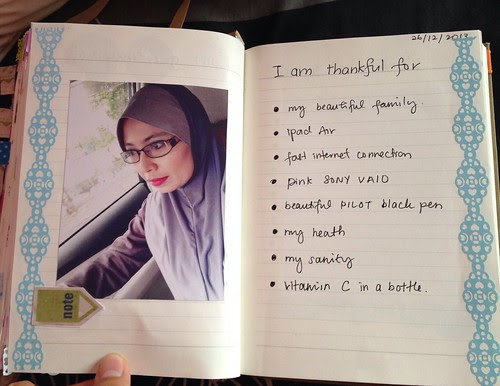 26/12/2013
I am thankful for
my beautiful family.
Ipad Air
fast internet connection
pink SONY VAIO
beautiful PILOT black pen
my heath
my sanity
vitamin C in a bottle.
note